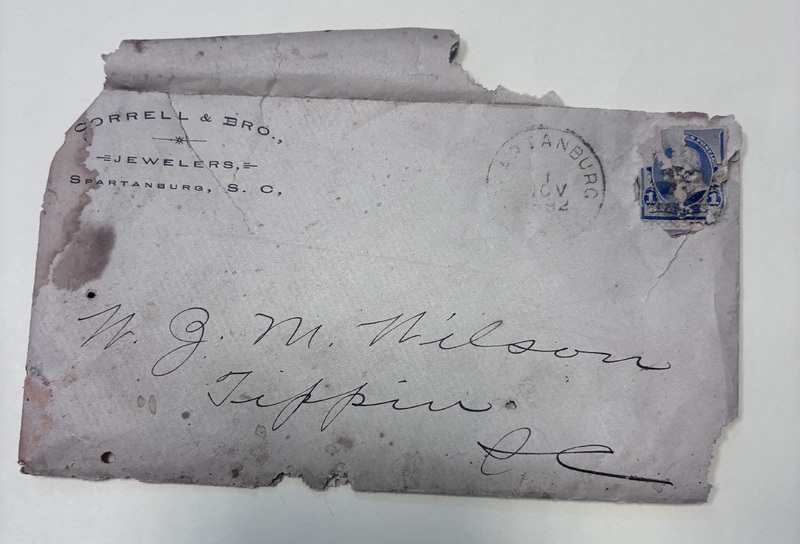 CORRELL & BRO.,
JEWELERS,
SPARTANBURG, S. C,
ARTANBURG
1
NOV
892
1 1
W. J. M. Wilson
Tippin
S C